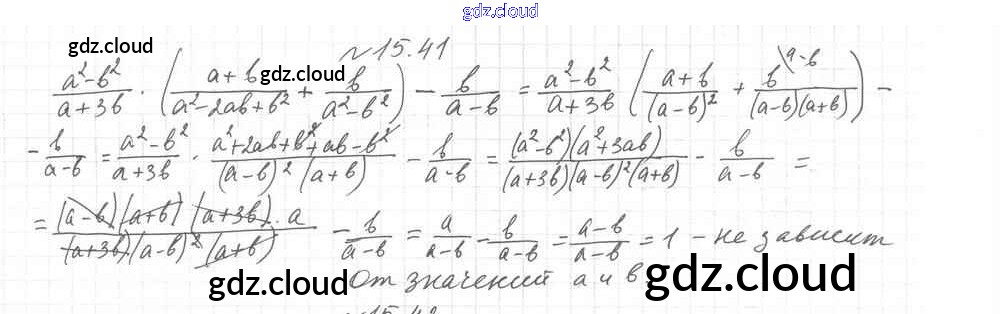 gdz.cloud
№15.41
gdz.cloud
(a²-b²)/(a+3b) · ((a+b)/(a²-2ab+b²) + b/(a²-b²)) - b/(a-b) = (a²-b²)/(a+3b) ((a+b)/(a-b)² + b\a-b/((a-b)(a+b))) -
gdz.cloud
- b/(a-b) = (a²-b²)/(a+3b) · (a²+2ab+b²+ab-b²)/((a-b)²(a+b)) - b/(a-b) = (a²-b²)(a²+3ab)/((a+3b)(a-b)²(a+b)) - b/(a-b) =
= (a-b)(a+b)(a+3b)·a/((a+3b)(a-b)²(a+b)) - b/(a-b) = a/(a-b) - b/(a-b) = (a-b)/(a-b) = 1 - не зависит
от значений a и b
gdz.cloud
gdz.cloud
№15.42